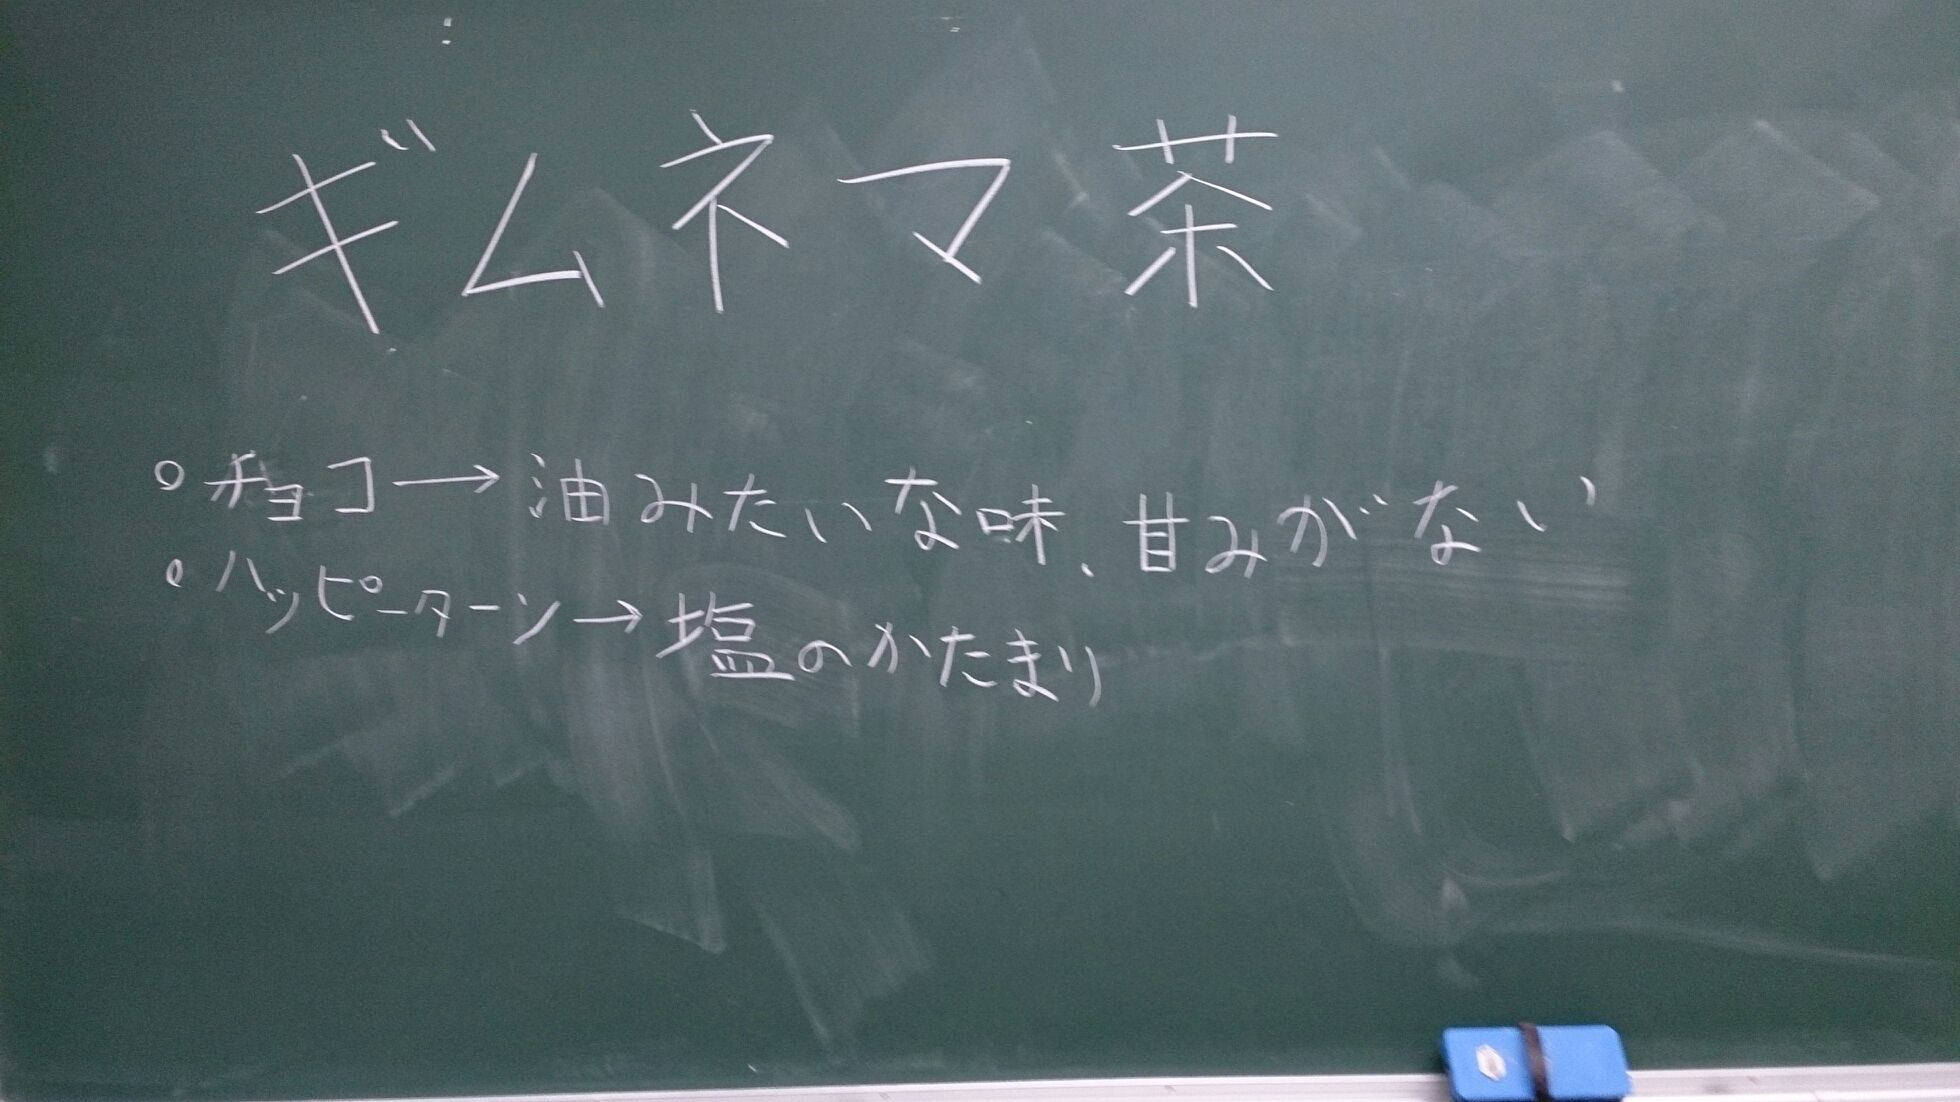 ギムネマ茶
○チョコ→油みたいな味、甘みがない
○ハッピーターン→塩のかたまり